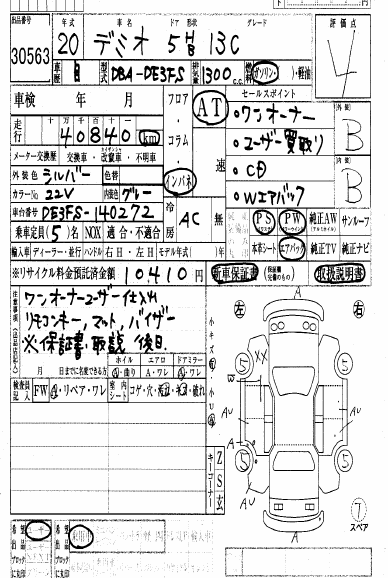 出品番号 年式 車名 ドア 形状 グレード 評価点
30563 20 デミオ 5 HB 13C 4
車歴 型式 DBA-DE3FS 排気量 1300 c.c. 燃料 ガソリン・軽油
車検 年 月 フロア・コラム・インパネ AT 速 セールスポイント
・ワンオーナー 外装 B
走行 十万千百十一 40840 km ・ユーザー買取り
メーター交換歴 交換車・改竄車・不明車 ・CD 内装 B
外装色 シルバー 色替 ・Wエアバック
カラーNo. 22V 内装色 グレー
車台番号 DE3FS-140272 冷房 AC 無 PS PW 純正AW サンルーフ
乗車定員(5)名 NOX 適合・不適合 本革シート エアバック 純正TV 純正ナビ
輸入車 ディーラー・並行 ハンドル 右H・左H モデル年式( 年)
※リサイクル料金預託済金額 10,410 円 新車保証書 取扱説明書
注意事項
ワンオーナーユーザー仕入れ
リモコンキー,マット,バイザー
※保証書・取説 後日
月 日までに名変できる方 ホイル エアロ ドアミラー
検査員記入 FW A・リペア・ワレ 室内シート コゲ・穴・汚れ・キズ・破れ
左 右
XX
W
AU
A
AU
AU
AU
5
5
5
5
7
スペア
キーコーナー
Z
S
玄